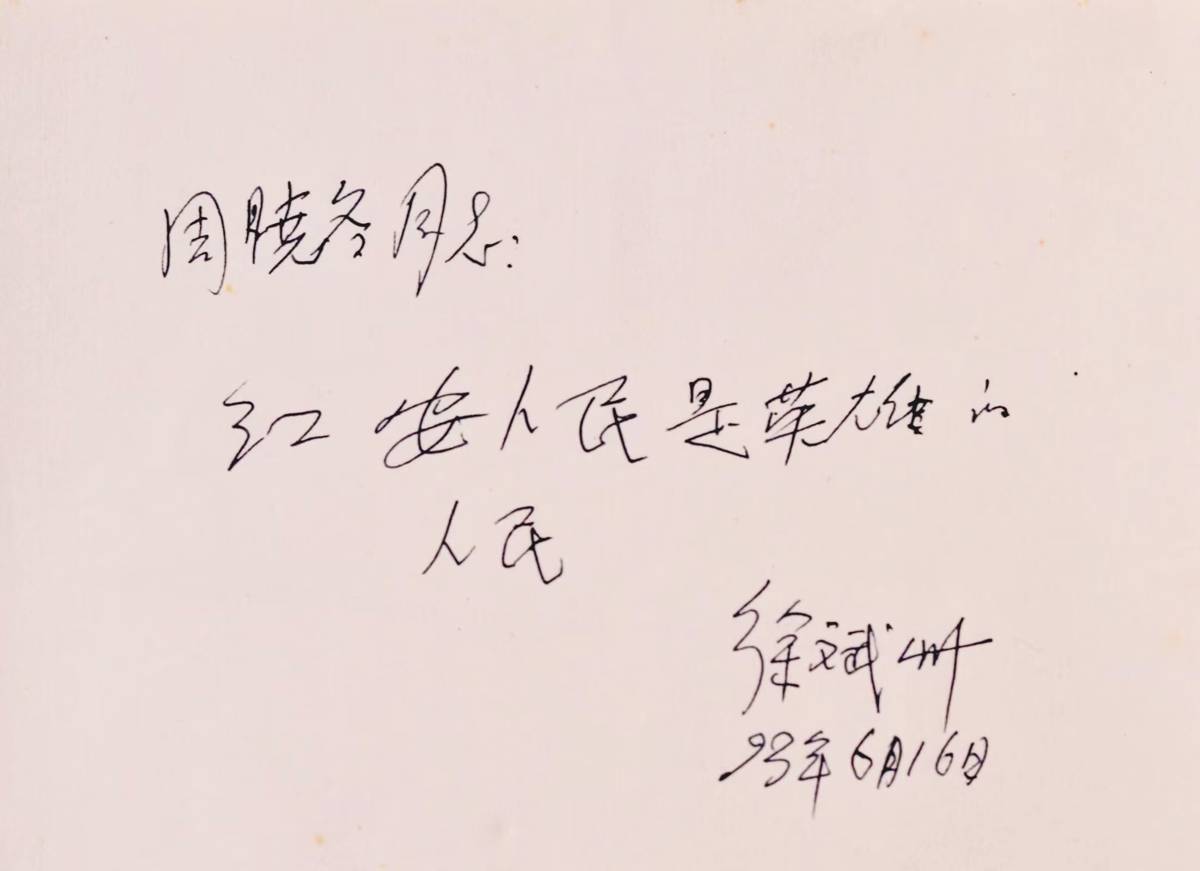 周曉冬同志：
红安人民是英雄的
人民
徐斌州
93年6月16日